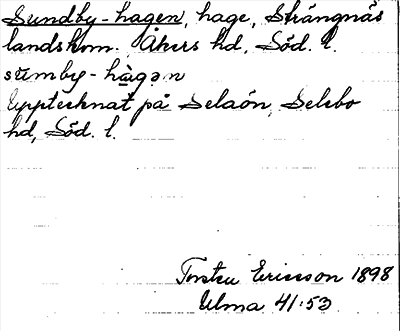 Sundby-hagen, hage, Strängnäs
landskom. Åkers hd, Söd. l.
sumby-hagan
Upptecknat på Selaön, Selebo
hd, Söd. l.
Torsten Ericsson 1898
Ulma 41:53